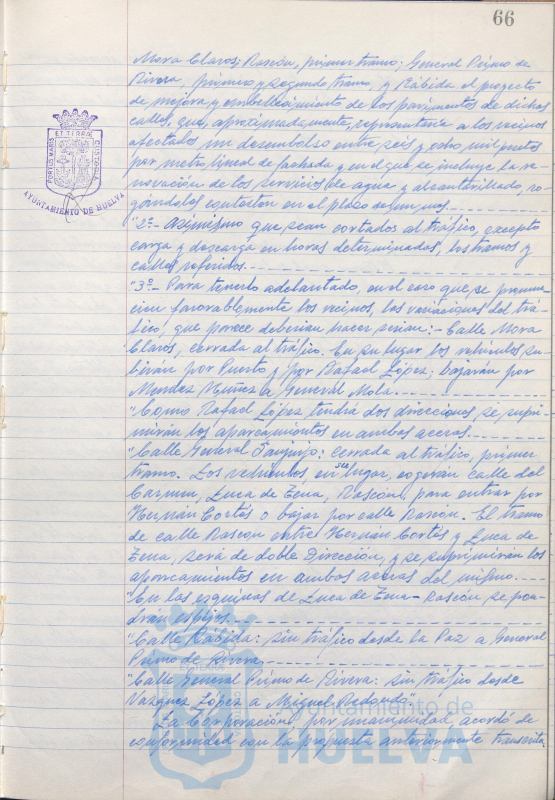 66
Mora Claros; Rascón, primer tramo; General Primo de
Rivera, primero y segundo tramo, y Rábida el proyecto
de mejora y embellecimiento de los pavimentos de dichas
calles, que, aproximadamente, representaría a los vecinos
afectados un desembolso entre seis y ocho mil pesetas
por metro lineal de fachada y en el que se incluye la re-
novación de los servicios de agua y alcantarillado, ro-
gándoles contesten en el plazo de un mes.
"2º.- Asimismo que sean cortados al tráfico, excepto
carga y descarga en horas determinadas, los tramos y
calles referidos.
"3º.- Para tenerlo adelantado, en el caso que se pronun-
cien favorablemente los vecinos, las variaciones del trá-
fico, que parece deberían hacer serían: - Calle Mora
Claros, cerrada al tráfico. En su lugar los vehículos su-
birán por Puerto y por Rafael López; bajarán por
Mendez Núñez a General Mola.
"Como Rafael López tendrá dos direcciones se supri-
mirán los aparcamientos en ambas aceras.
"Calle General Sanjurjo: cerrada al tráfico, primer
tramo. Los vehículos en su lugar, cogerán calle del
Carmen, Luca de Tena, Rascón, para entrar por
Hernán Cortés o bajar por calle Rascón. El tramo
de calle Rascón entre Hernán Cortés y Luca de
Tena, será de doble Dirección, y se suprimirán los
aparcamientos en ambas aceras del mismo.
"En las esquinas de Luca de Tena - Rascón se pon-
drán espejos.
"Calle Rábida: sin tráfico desde la Paz a General
Primo de Rivera,
"Calle General Primo de Rivera: sin tráfico desde
Vazquez López a Miguel Redondo"
La Corporación, por unanimidad, acordó de
conformidad con la propuesta anteriormente transcrita.
PORTUS MARIS ET TERRAE CUSTODIA
AYUNTAMIENTO DE HUELVA
Ayuntamiento de
HUELVA